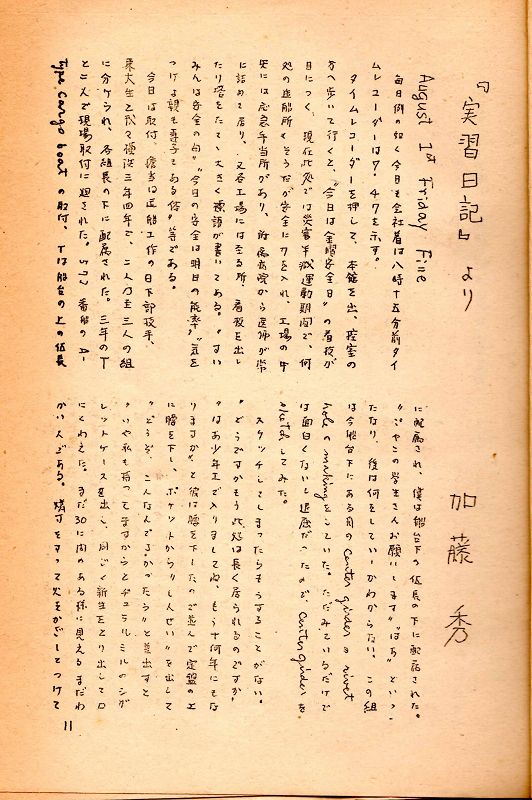 『実習日記』より
加藤 秀
August 1st Friday Fine
毎日例の如く今日も会社着は八時十五分前タイ
ムレコーダーは7.47を示す。
タイムレコーダーを押して、本館を出、控室の
方へ歩いて行くと、“今日は金曜安全日”の看板が
目につく、現在此処では災害半減運動期間で、何
処の造船所もそうだが安全に力を入れ、工場の中
央には応急手当所があり、附属病院から医師が常
に詰めて居り、又各工場には至る所、看板を出し
たり塔をたて、大きく標語が書いてある。“すい
みんは安全の向”“今日の安全は明日の能率”“気を
つけよ親も妻子もある体”等である。
今日は取付、擔当は造船工作の日下部技手、
東大生と我々横浜三年四年で、二人乃至三人の組
に分けられ、各組長の下に配属された。三年のT
と二人で現場取付に廻された。573番船のD-
Type Cargo boatの取付、Tは船台の上の伍長
に配属され、僕は船台下の伍長の下に配属された。
“ぢやこの学生さんお願いします”“はあ”という
たなり、後は何をしていゝかわからない。この組
は今船台下にある角のcenter girderのrivet
holeのmakingをしていた。たゞみているだけで
は面白くないし退屈だつたので、center girderを
sketchしてみた。
スケツチしてしまつたらもうすることがない。
“どうですかもう此処は長く居られるのですか”
“はあ少年工で入りましてね、もう十何年にもな
りますか”と彼は腰を下したので並んで定盤の上
に腰を下し、ポケツトから“しんせい”を出して
“どうぞ、こんなんでよかつたら”と差出すと
“いや私も持つてますから”とヂュラルミルのシガ
レツトケースを出し、同じく新生をとり出して口
にくわえた。まだ30に間のある様に見えるまだわ
かい人である。燐寸をすつて火をかざしてつけて
11